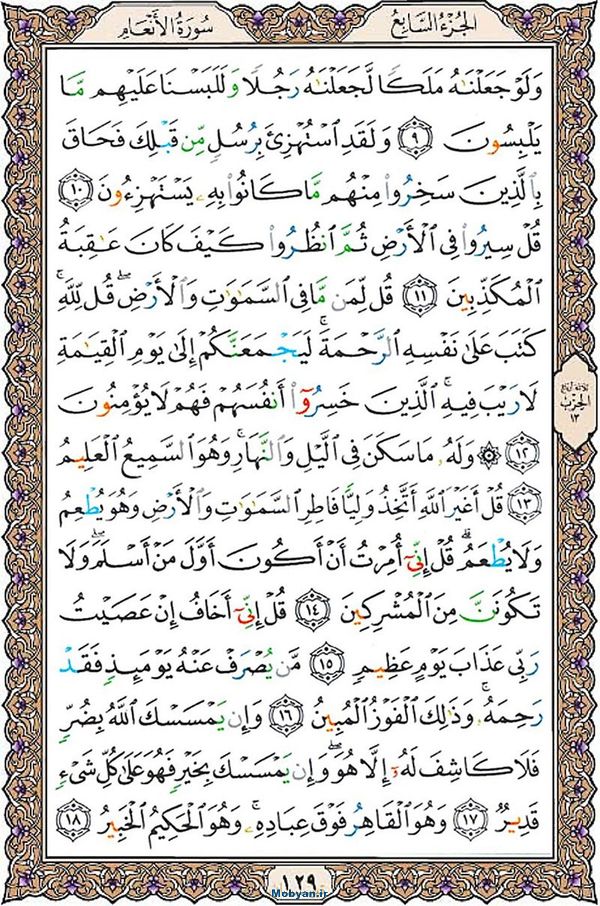 سُورَةُ الأَنْعَامِ
الجُزْءُ السَّابِعُ
وَلَوْ جَعَلْنَـٰهُ مَلَكًا لَّجَعَلْنَـٰهُ رَجُلًا وَلَلَبَسْنَا عَلَيْهِم مَّا
يَلْبِسُونَ ٩ وَلَقَدِ ٱسْتُهْزِئَ بِرُسُلٍ مِّن قَبْلِكَ فَحَاقَ
بِٱلَّذِينَ سَخِرُوا۟ مِنْهُم مَّا كَانُوا۟ بِهِۦ يَسْتَهْزِءُونَ ١٠
قُلْ سِيرُوا۟ فِى ٱلْأَرْضِ ثُمَّ ٱنظُرُوا۟ كَيْفَ كَانَ عَـٰقِبَةُ
ٱلْمُكَذِّبِينَ ١١ قُل لِّمَن مَّا فِى ٱلسَّمَـٰوَٰتِ وَٱلْأَرْضِ ۖ قُل لِّلَّهِ ۚ
كَتَبَ عَلَىٰ نَفْسِهِ ٱلرَّحْمَةَ ۚ لَيَجْمَعَنَّكُمْ إِلَىٰ يَوْمِ ٱلْقِيَـٰمَةِ
لَا رَيْبَ فِيهِ ۚ ٱلَّذِينَ خَسِرُوٓا۟ أَنفُسَهُمْ فَهُمْ لَا يُؤْمِنُونَ
١٢ ۞ وَلَهُۥ مَا سَكَنَ فِى ٱلَّيْلِ وَٱلنَّهَارِ ۚ وَهُوَ ٱلسَّمِيعُ ٱلْعَلِيمُ
١٣ قُلْ أَغَيْرَ ٱللَّهِ أَتَّخِذُ وَلِيًّا فَاطِرِ ٱلسَّمَـٰوَٰتِ وَٱلْأَرْضِ وَهُوَ يُطْعِمُ
وَلَا يُطْعَمُ ۗ قُلْ إِنِّىٓ أُمِرْتُ أَنْ أَكُونَ أَوَّلَ مَنْ أَسْلَمَ ۖ وَلَا
تَكُونَنَّ مِنَ ٱلْمُشْرِكِينَ ١٤ قُلْ إِنِّىٓ أَخَافُ إِنْ عَصَيْتُ
رَبِّى عَذَابَ يَوْمٍ عَظِيمٍ ١٥ مَّن يُصْرَفْ عَنْهُ يَوْمَئِذٍ فَقَدْ
رَحِمَهُۥ ۚ وَذَٰلِكَ ٱلْفَوْزُ ٱلْمُبِينُ ١٦ وَإِن يَمْسَسْكَ ٱللَّهُ بِضُرٍّ
فَلَا كَاشِفَ لَهُۥٓ إِلَّا هُوَ ۖ وَإِن يَمْسَسْكَ بِخَيْرٍ فَهُوَ عَلَىٰ كُلِّ شَىْءٍ
قَدِيرٌ ١٧ وَهُوَ ٱلْقَاهِرُ فَوْقَ عِبَادِهِۦ ۚ وَهُوَ ٱلْحَكِيمُ ٱلْخَبِيرُ ١٨
ثلاثة أرباع
الحزب
١٣
١٢٩
Mobyan.ir